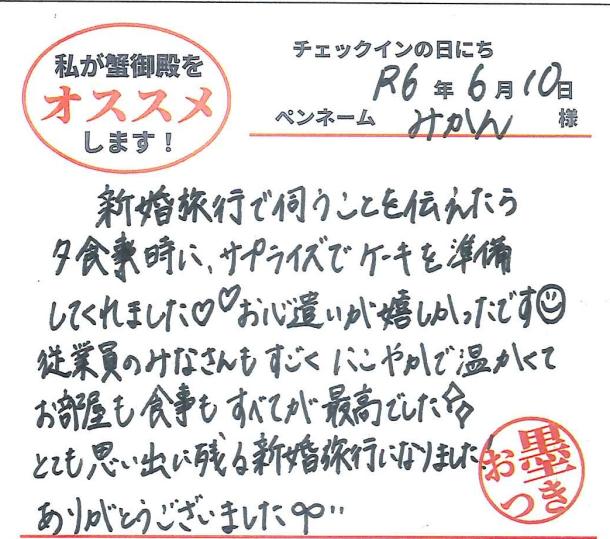 私が蟹御殿を
オススメ
します！
チェックインの日にち
R6 年 6 月 10 日
ペンネーム みかん 様
新婚旅行で伺うことを伝えたら
夕食事時に、サプライズでケーキを準備
してくれました♡♡お心遣いが嬉しかったです☺
従業員のみなさんもすごくにこやかで温かくて
お部屋も食事もすべてが最高でした
とても思い出に残る新婚旅行になりました!
ありがとうございました
お墨つき